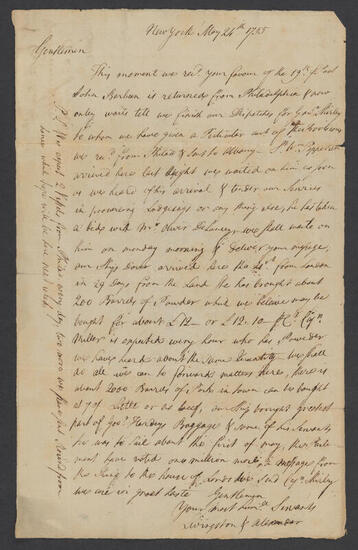 New York May 24th 1755
Gentlemen
This moment we recd. your favour of the 19th
John Barban is returned from Philadelphia & now
only waits till we finish our Dispatches for Genl. Shirley
to whom we have given a Perticular acct of
we recd. from Philad & Sent to Albany
arrived here last Night was waited on him as soon
as we heard of his arrival & tender our Services
in procuring Lodgings or any thing else, he has taken
a beds with Mr. Oliver DeLancey, we shall waite on
him on monday morning & Deliver your message,
our Ship Dover arrived here the from London
in 29 Days from the Land he has brought about
200 Barrels of Powder which we beleave may be
bought for about £12 — or £12.10 Capn.
Miller is expected every hour who has Powder
we have heard about the Same Quantity we shall
do all we can to forward matters there, here is
about 2000 Barrels of Porke in town can be bought
at little or no beef, our Ship brought greatest
part of Gov. Hardys Baggage & some of his Servants
he was to Sail about the first of may, the Parle-
ment have voted one million on a message from
the King to the house of Lords
we are in great haste Gentlemen
Your most Humble Servants
Livingston & Alexander
P.S. We expect 2 Vessels from Philad every day
know what hope will be here need what